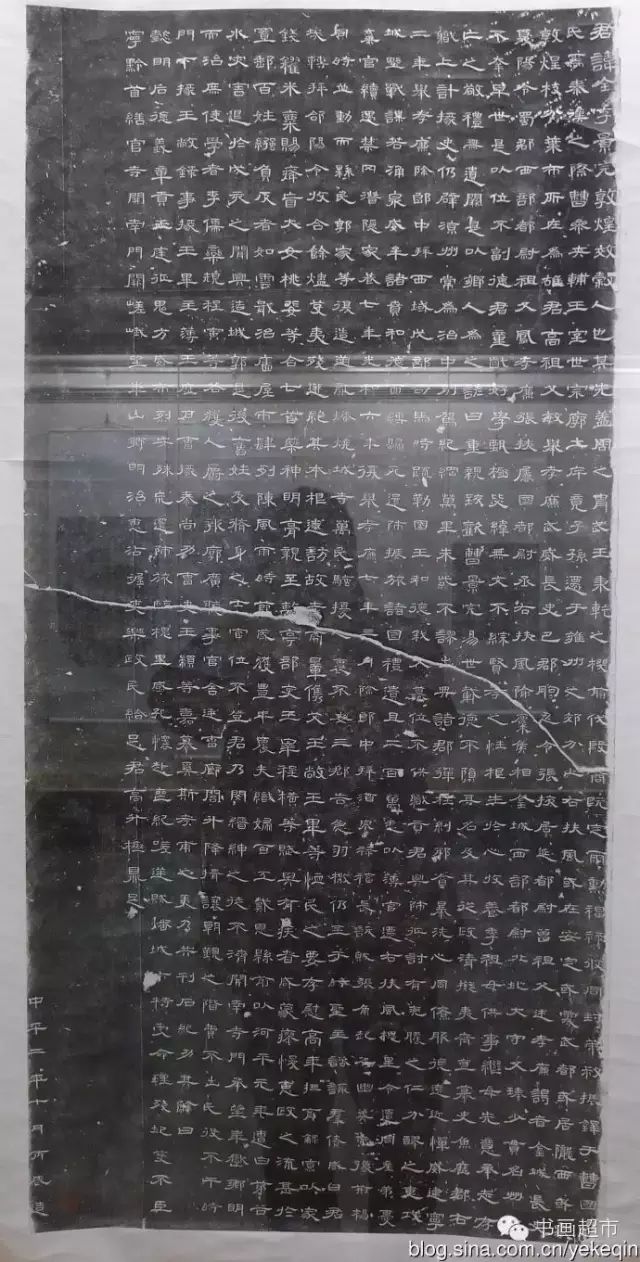 君諱全字景完敦煌效穀人也其先蓋周之胄武王秉乾之機翦伐殷商既定爾勳福祿攸同封弟叔振鐸于曹國因
氏焉秦漢之際曹參夾輔王室世宗廓土斥竟子孫遷于雍州之郊分止右扶風或在安定或處武都或居隴西或家
敦煌枝分葉布所在為雄君高祖父敏舉孝廉武威長史巴郡朐忍令張掖居延都尉曾祖父述孝廉謁者金城長史
夏陽令蜀郡西部都尉祖父鳳孝廉張掖屬國都尉丞右扶風隃麋侯相金城西部都尉北地大守父琫少貫名州郡
不幸早世是以位不副德君童齔好學甄極毖緯無文不綜賢孝之性根生於心收養季祖母供事繼母先意承志存
亡之敬禮無遺闕是以鄉人為之諺曰重親致歡曹景完易世載德不隕其名及其從政清擬夷齊直慕史魚歷郡右
職上計掾史仍辟涼州常為治中別駕紀綱萬里朱紫不謬出典諸郡彈枉糾邪貪暴洗心同僚服德遠近憚威建寧
二年舉孝廉除郎中拜西域戊部司馬時疏勒國王和德弒父篡位不供職貢君興師征討有兗膿之仁分醪之惠攻
城野戰謀若涌泉威牟諸賁和德面縛歸死還師振旅諸國禮遺且二百萬悉以薄官遷右扶風槐里令遭同產弟憂
棄官續遇禁网潛隱家巷七年光和六年復舉孝廉七年三月除郎中拜酒泉祿福長訞賊張角起兵幽冀兗豫荊楊
同時並動而縣民郭家等復造逆亂燔燒城寺萬民騷擾人裹不安三郡告急羽檄仍至于時聖主諮諏群僚咸曰君
哉轉拜郃陽令收合餘燼芟夷殘迸絕其本根遂訪故老商量儁艾王敞王畢等恤民之要存慰高年撫育鰥寡以家
錢糴米粟賜癃盲大女桃婓等合七首藥神明膏親至離亭部吏王宰程橫等賦與有疾者咸蒙瘳悛惠政之流甚於
置郵百姓繈負反者如雲戢治廧屋市肆列陳風雨時節歲獲豐年農夫織婦百工戴恩縣前以河平元年遭白茅谷
水災害退於戍亥之間興造城郭是後舊姓及脩身之士官位不登君乃閔縉紳之徒不濟開南寺門承望華嶽鄉明
而治庶使學者李儒欒規程寅等各獲人爵之報廓廣聽事官舍廷曹廊閣升降揖讓朝覲之階費不出民役不干時
門下掾王敞錄事掾王畢主簿王歷戶曹掾秦尚功曹史王顓等嘉慕奚斯考甫之美乃共刊石紀功其辭曰
懿明后德義章貢王庭征鬼方威布烈安殊荒還師旅臨槐里感孔懷赴喪紀嗟逆賊燔城市特受命理殘圮芟不臣
寧黔首繕官寺開南門闕嵯峨望華山鄉明治惠沾渥吏樂政民給足君高升極鼎足
中平二年十月丙辰造
书画超市
blog.sina.com.cn/yekeqin